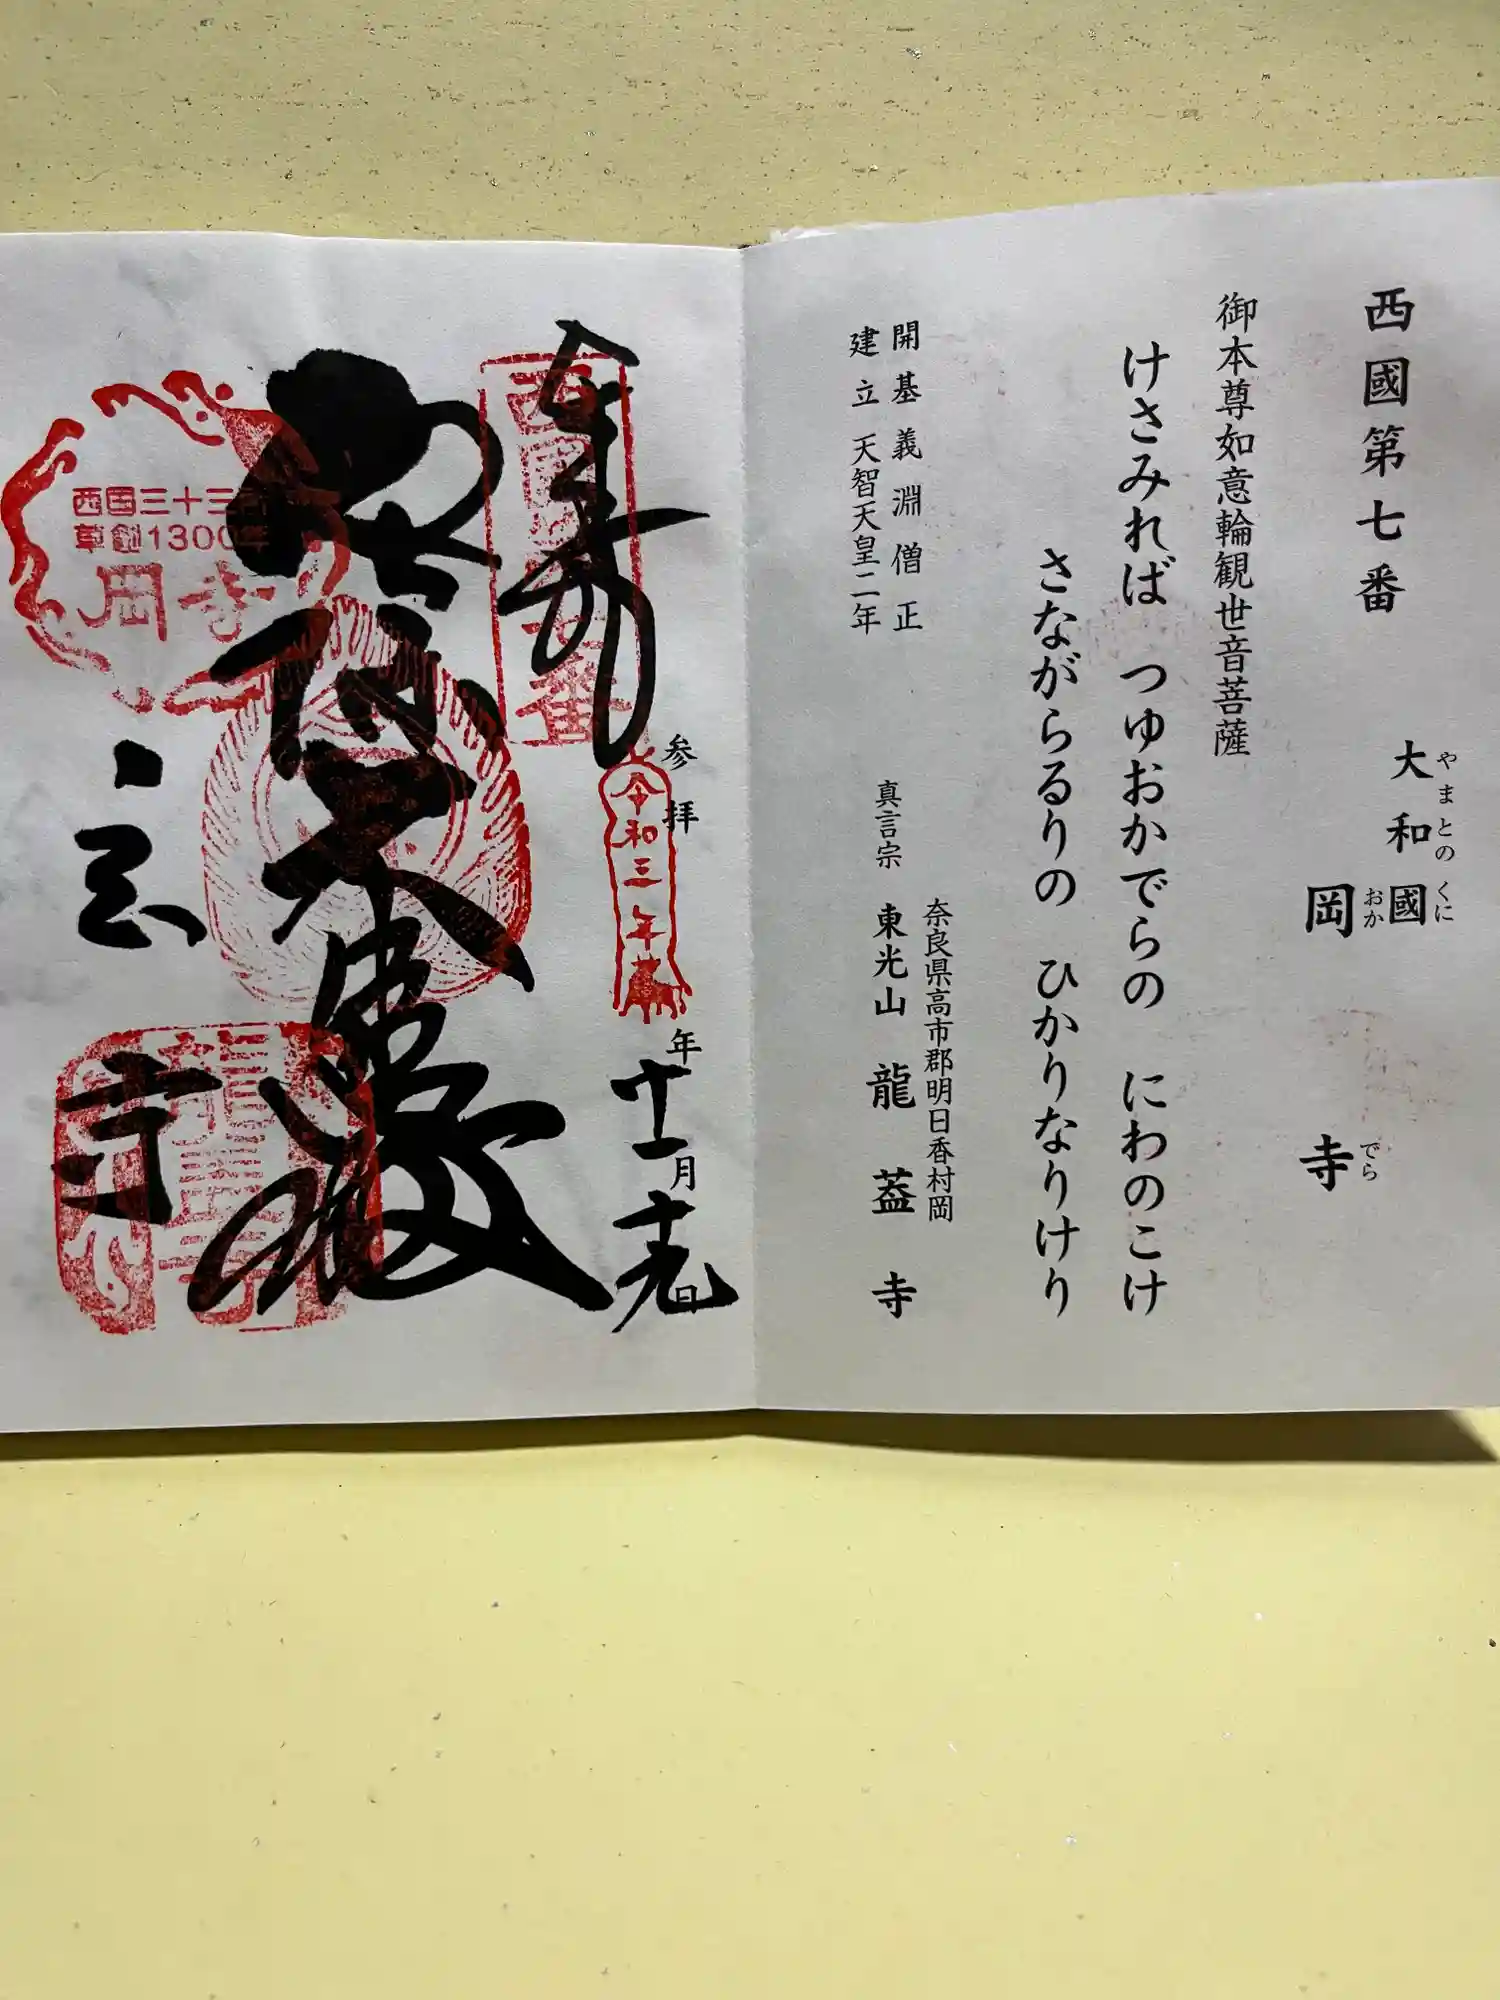 西國第七番
大和國
やまとのくに
岡寺
おかでら
御本尊如意輪観世音菩薩
けさみれば つゆおかでらの にわのこけ
さながらるりの ひかりなりけり
開基義淵僧正
建立天智天皇二年
奈良県高市郡明日香村岡
真言宗 東光山 龍蓋寺
奉
参拝
令和三年
年十一月十九日
西国三十三所
草創1300年
岡寺
寺